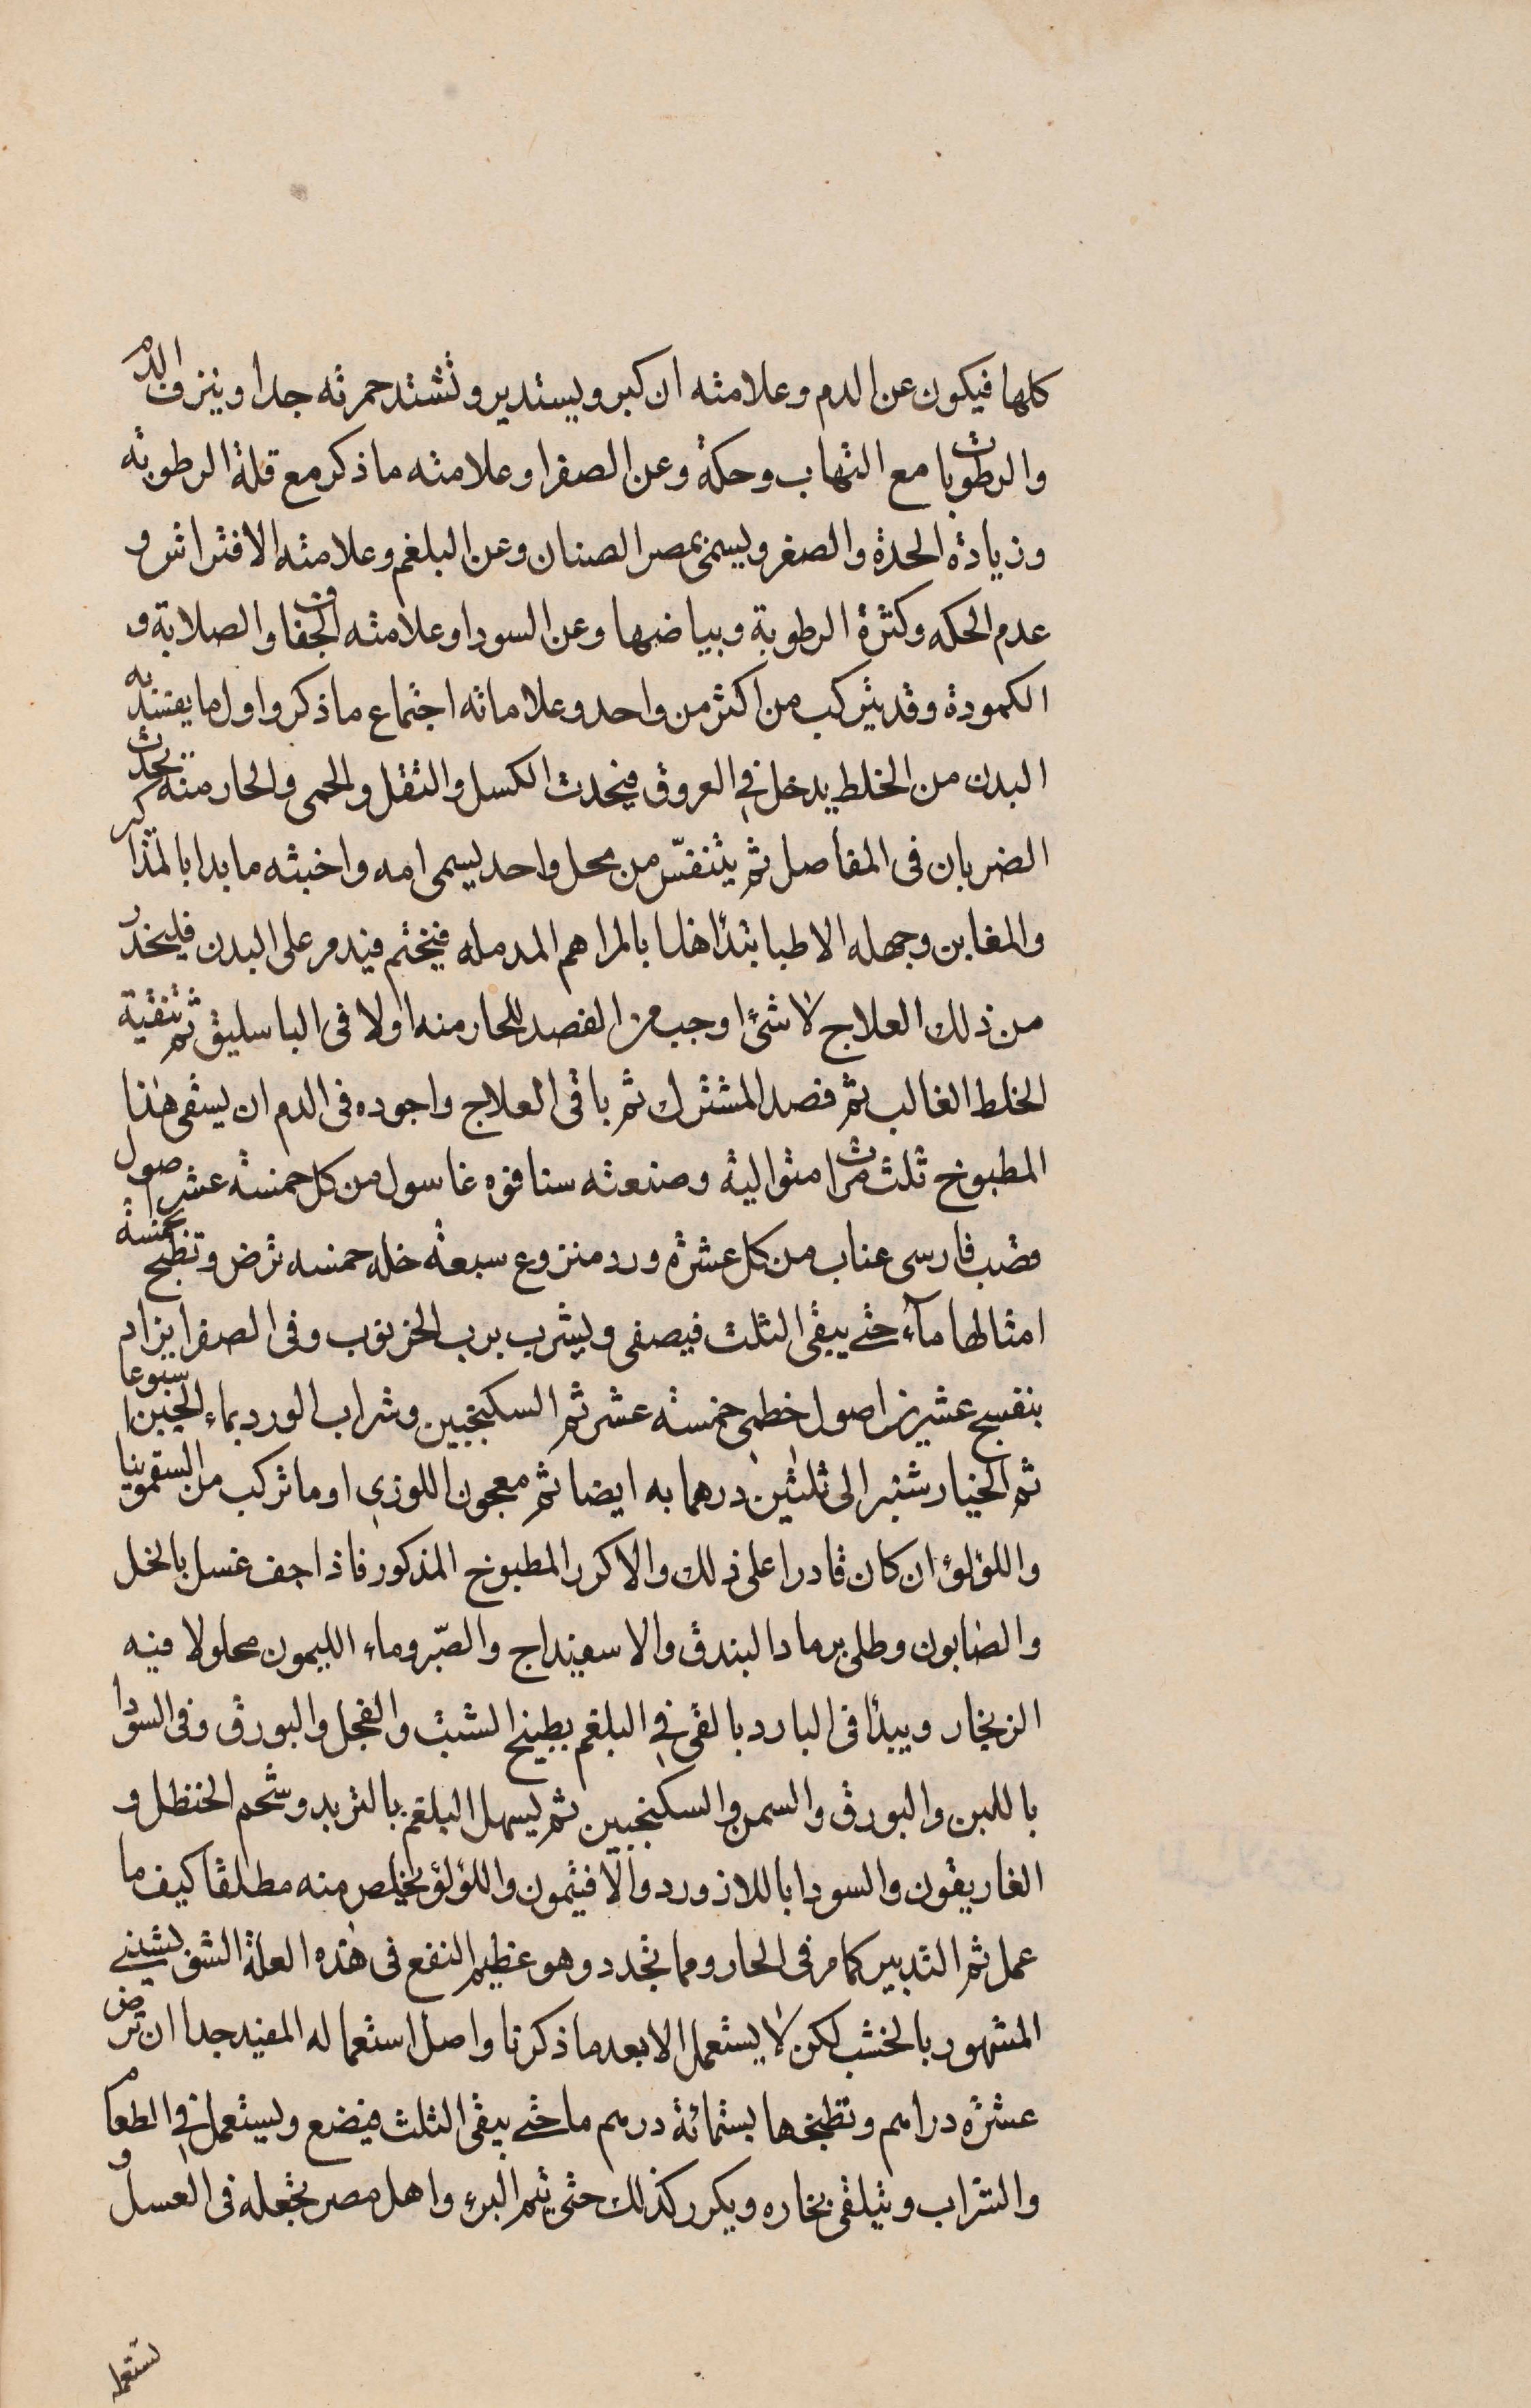 كلها فيكون عن الدم وعلامته ان كبر ويستدير وتشتد حمرته جدا وينزف الدم
والرطوبات مع التهاب وحكة وعن الصفرا وعلامته ما ذكر مع قلة الرطوبة
وزيادة الحدة والصغر ويسمى بمصر الصنان وعن البلغم وعلامته الافتراش و
عدم الحكه وكثرة الرطوبة وبياضها وعن السودا وعلامته الجفاف والصلابة و
الكمودة وقد يتركب من اكثر من واحد وعلاماته اجتماع ما ذكر واول ما يفسد به
البدن من الخلط يدخل في العروق فيحدث الكسل والثقل والحمى والحار منه يحدث
الضربان فى المفاصل ثم يتنفس من محل واحد يسمى امه واخبثه ما بدا بالمذاكر
والمغابن وجهله الاطبا تبدأ هذا بالمراهم المدمله فيختم فيدمر على البدن فليحذر
من ذلك العلاج لا شئ اوجب من الفصد للحار منه اولا فى الباسليق ثم تنقية
الخلط الغالب ثم فصد المشترك ثم باقى العلاج واجوده فى الدم ان يسقى هذا
المطبوخ ثلث مرات متوالية وصنعته سنا فوه غاسول من كل خمسة عشر اصول
قصب فارسى عناب من كل عشرة ورد منزوع سبعة خله خمسه ترض وتطبخ بخمسة
امثالها مآء حتى يبقى الثلث فيصفى ويشرب برب الخرنوب وفى الصفرا يزاد
بنفسج عشرين اصول خطمى خمسة عشر ثم السكنجبين وشراب الورد بماء الجبن اسبوعا
ثم الخيارشنبر الى ثلثين درهما به ايضا ثم معجون اللوزى او ما تركب من السقمونيا
واللؤلؤ ان كان قادرا على ذلك والا كرر المطبوخ المذكور فاذا جف غسل بالخل
والصابون وطلى برماد البندق والاسفيداج والصبر وماء الليمون محلولا فيه
الزنجار ويبدأ فى البارد بالقى في البلغم بطبيخ الشبت والفجل والبورق وفى السودا
باللبن والبورق والسمن والسكنجبين ثم يسهل البلغم بالتربد وشحم الحنظل و
الغاريقون والسودا باللازورد والافتيمون واللؤلؤ يخلص منه مطلقا كيف ما
عمل ثم التدبير كما مر فى الحار ومما تجدد وهو عظيم النفع فى هذه العلة الشق شينى
المشهور بالخشب لكن لا يستعمل الا بعد ما ذكرنا واصل استعماله المفيد جدا ان ترض
عشرة دراهم وتطبخها بستمائة درهم ما حتى يبقى الثلث فيضع ويستعمل في الطعام
والشراب ويتلقى بخاره ويكرر كذلك حتى يتم البرء واهل مصر تجعله فى العسل و
تستعمل